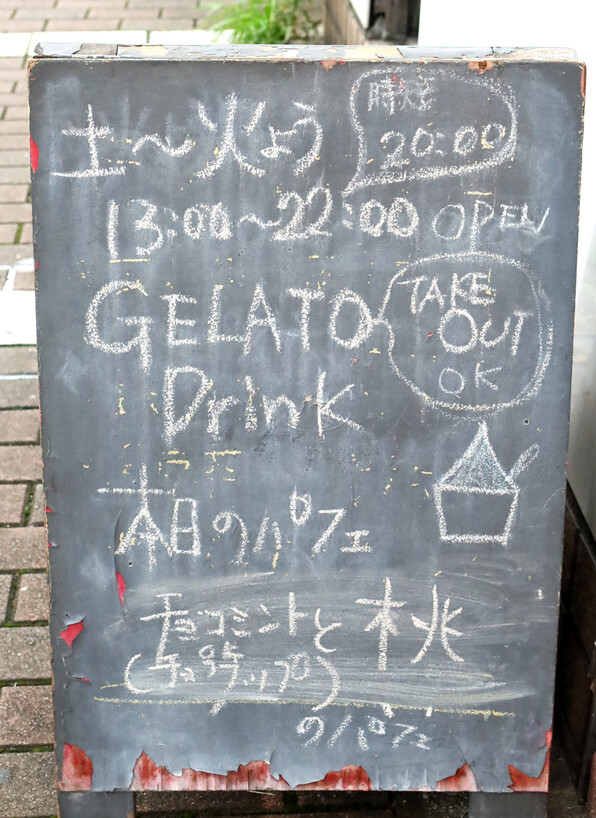 土〜火よう
時短
20:00
13:00〜22:00 OPEN
GELATO
TAKE
OUT
OK
Drink
本日のパフェ
チョコミントと桃
(チョコチップ)
のパフェ